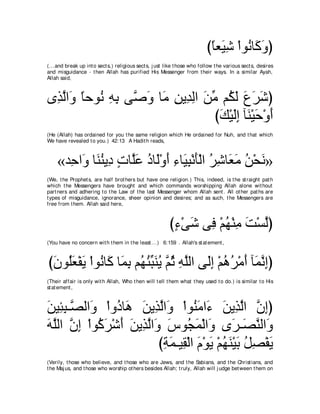 (وَكَانُواْ شِيَعًا)
(..and break up into sects,) religious sects, just like those who follow the various sects, desires
and misguidance - then Allah has purified His Messenger from their ways. In a similar Ayah,
Allah said,
(شَرَعَ لَكُم مِّنَ الِدِينِ مَا وَصَّى بِهِ نُوحاً وَالَّذِى
أَوْحَيْنَآ إِلَيْكَ)
(He (Allah) has ordained for you the same religion which He ordained for Nuh, and that which
We have revealed to you.) 42:13 A Hadith reads,
«نَحْنُ مَعَاشِرُ الْأَنْبِيَاءِ أَوْلَادُ عَلَّاتٍ دِينُنَا وَاحِد»
(We, the Prophets, are half brothers but have one religion.) This, indeed, is the straight path
which the Messengers have brought and which commands worshipping Allah alone without
partners and adhering to the Law of the last Messenger whom Allah sent. All other paths are
types of misguidance, ignorance, sheer opinion and desires; and as such, the Messengers are
free from them. Allah said here,
(لَّسْتَ مِنْهُمْ فِى شَىْءٍ)
(You have no concern with them in the least...) 6:159 . Allah's statement,
(إِنَّمَآ أَمْرُهُمْ إِلَى اللَّهِ ثُمَّ يُنَبِّئُهُم بِمَا كَانُواْ يَفْعَلُونَ)
(Their affair is only with Allah, Who then will tell them what they used to do.) is similar to His
statement,
(إِنَّ الَّذِينَ ءَامَنُواْ وَالَّذِينَ هَادُواْ وَالصَّـبِئِينَ
وَالنَّصَـرَى وَالْمَجُوسَ وَالَّذِينَ أَشْرَكُواْ إِنَّ اللَّهَ
يَفْصِلُ بَيْنَهُمْ يَوْمَ الْقِيَـمَةِ)
(Verily, those who believe, and those who are Jews, and the Sabians, and the Christians, and
the Majus, and those who worship others besides Allah; truly, Allah will judge between them on